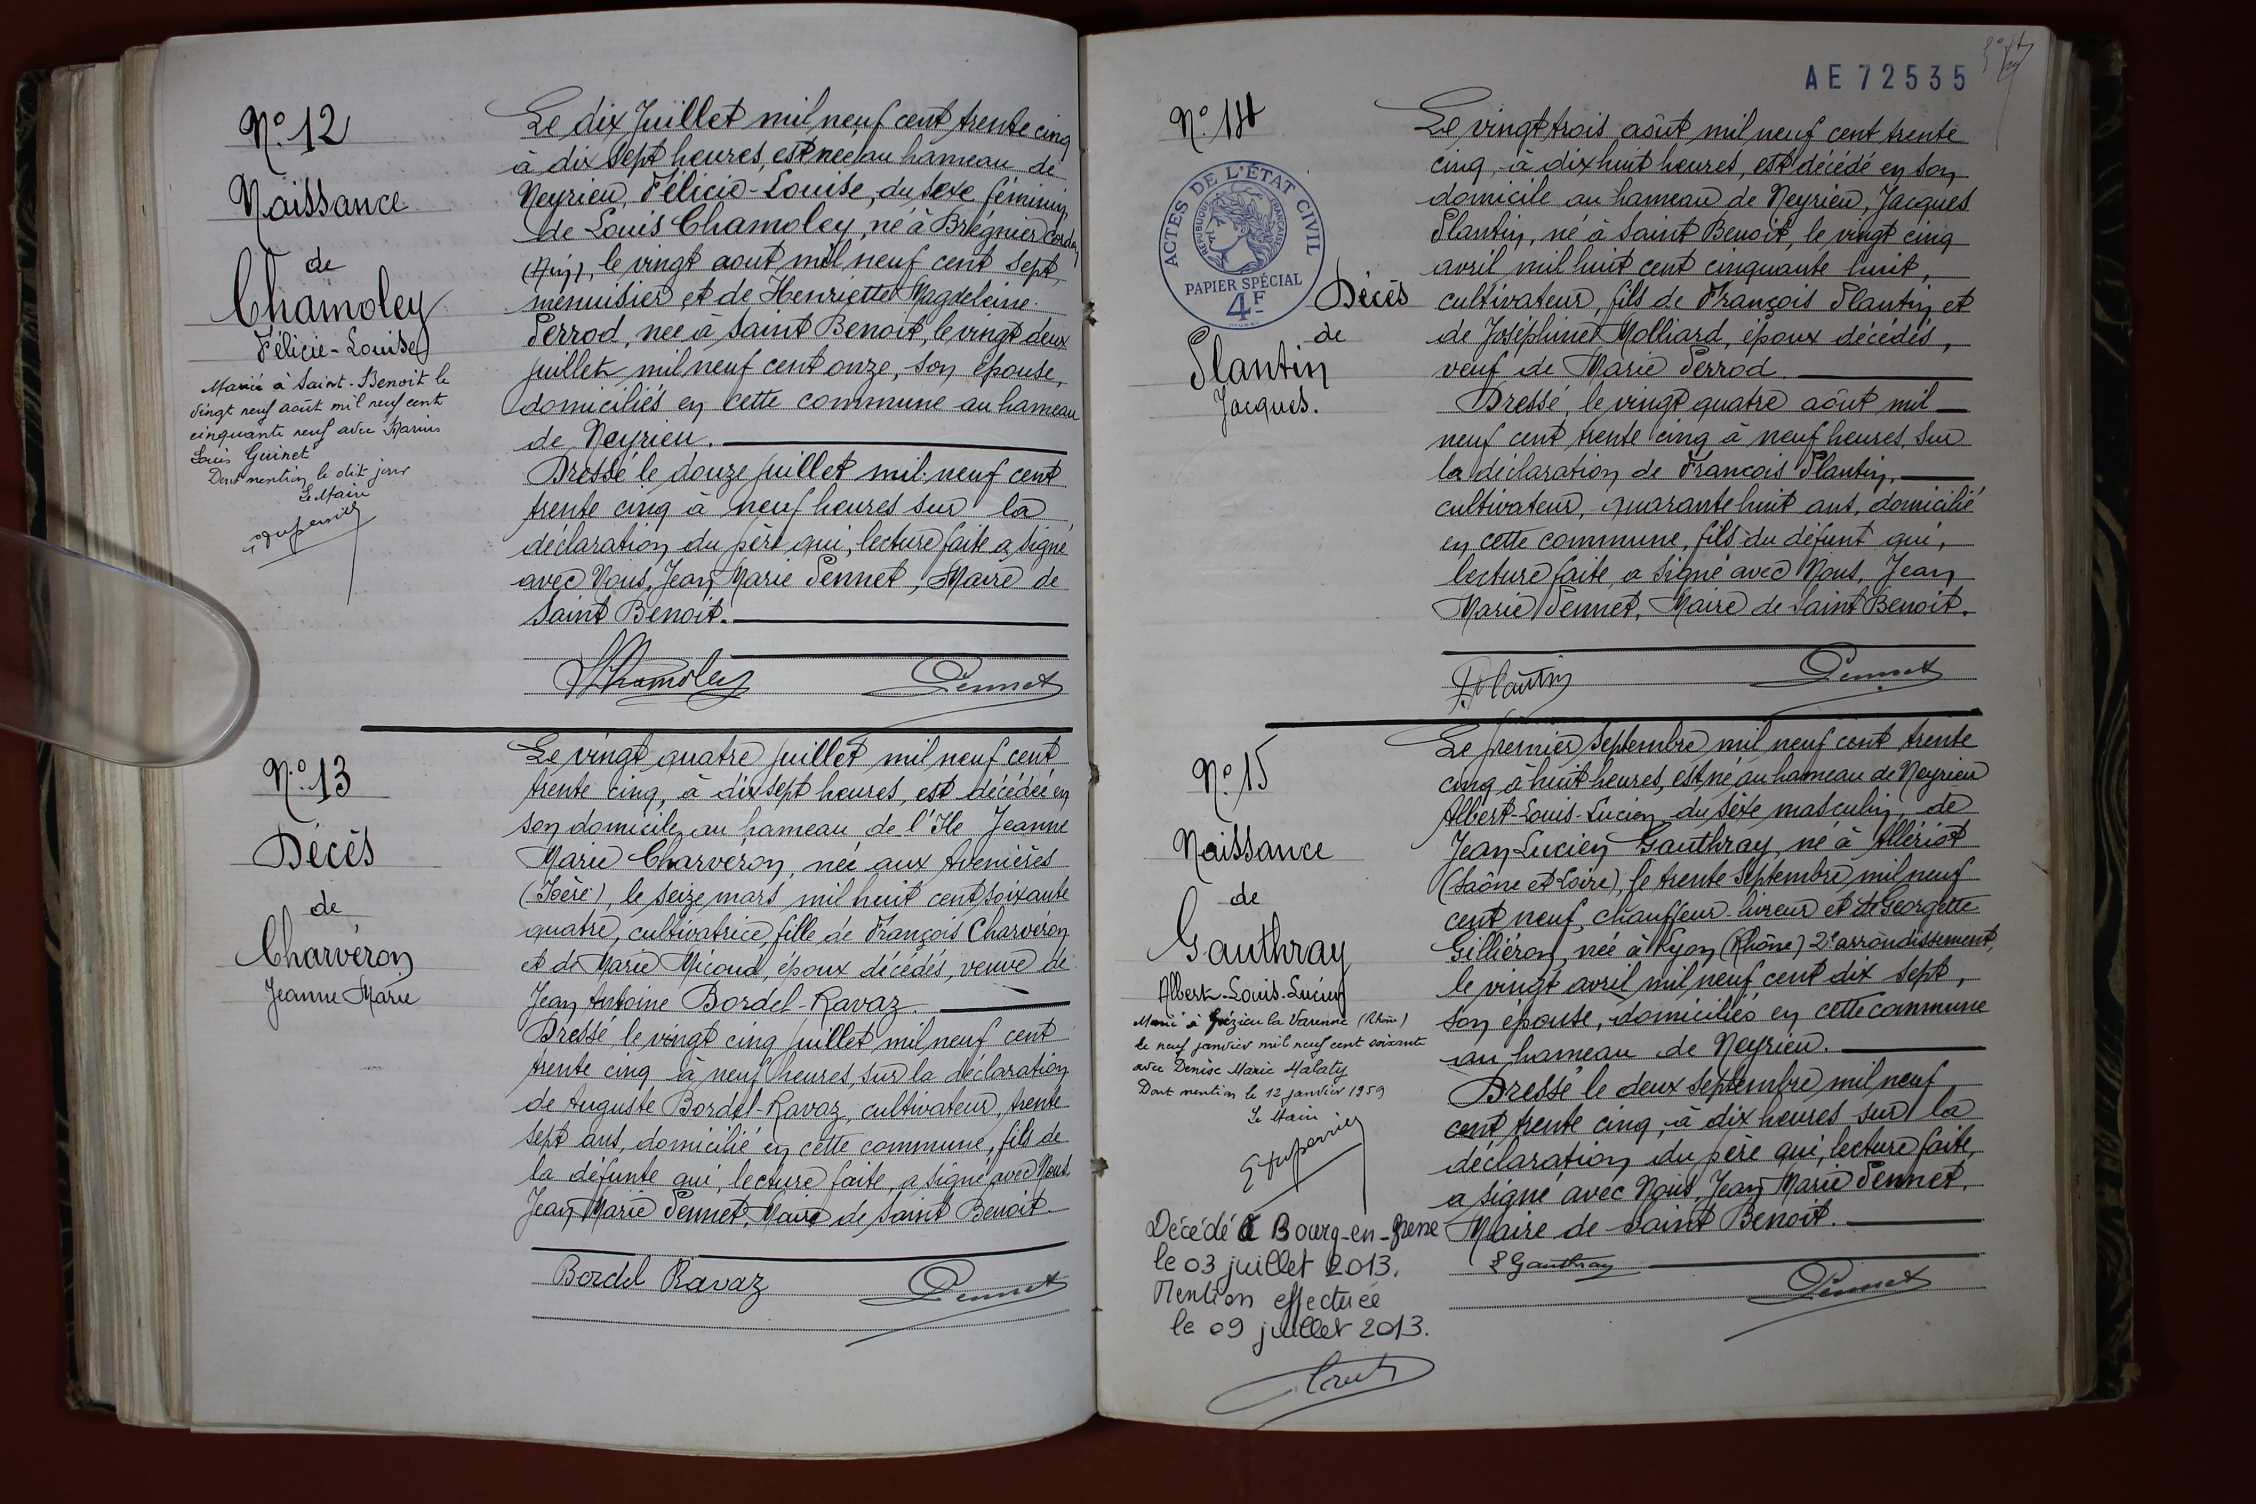 N° 12
Naissance
de
Chamoley
Félicie-Louise
Marié à Saint-Benoit le
vingt neuf août mil neuf cent
cinquante neuf avec Marius
Louis Guinet
Dont mention le dit jour
Le Maire
Le dix Juillet mil neuf cent trente cinq
à dix sept heures, est née au hameau de
Neyrieu, Félicie-Louise, du sexe féminin,
de Louis Chamoley, né à Brégnier Cordon
(Ain), le vingt aout mil neuf cent sept,
menuisier et de Henriette Magdeleine
Perrod, née à Saint Benoit, le vingt deux
juillet mil neuf cent onze, son épouse,
domiciliés en cette commune au hameau
de Neyrieu.
Dressé le douze juillet mil neuf cent
trente cinq à neuf heures sur la
déclaration du père qui, lecture faite a signé
avec Nous, Jean Marie Pennet, Maire de
Saint Benoit.
Chamoley Pennet
N° 13
Décès
de
Charvéron
Jeanne Marie
Le vingt quatre juillet mil neuf cent
trente cinq, à dix sept heures, est décédée en
son domicile au hameau de l'Ile Jeanne
Marie Charvéron, née aux Avenières
(Isère), le seize mars mil huit cent soixante
quatre, cultivatrice, fille de François Charvéron
et de Marie Micoud, époux décédés, veuve de
Jean Antoine Bordel-Ravaz.
Dressé, le vingt cinq juillet mil neuf cent
trente cinq à neuf heures, sur la déclaration
de Auguste Bordel-Ravaz, cultivateur, trente
sept ans, domicilié en cette commune, fils de
la défunte qui, lecture faite, a signé avec Nous
Jean Marie Pennet, Maire de Saint Benoit.
Bordel Ravaz Pennet
AE 72535
N° 14
ACTES DE L'ÉTAT CIVIL
RÉPUBLIQUE FRANÇAISE
PAPIER SPÉCIAL
4F
Décès
de
Plantin
Jacques.
Le vingt trois aôut mil neuf cent trente
cinq, à dix huit heures, est décédé en son
domicile au hameau de Neyrieu, Jacques
Plantin, né à Saint Benoit, le vingt cinq
avril mil huit cent cinquante huit,
cultivateur, fils de François Plantin et
de Joséphine Molliard, époux décédés,
veuf de Marie Perrod.
Dressé, le vingt quatre aôut mil
neuf cent trente cinq à neuf heures, sur
la déclaration de François Plantin,
cultivateur, quarante huit ans, domicilié
en cette commune, fils du défunt qui,
lecture faite, a signé avec Nous, Jean
Marie Pennet, Maire de Saint Benoit.
F. Plantin Pennet
N° 15
Naissance
de
Gauthray
Albert-Louis-Lucien
Marié à Grézieu la Varenne (Rhône)
le neuf janvier mil neuf cent soixante
avec Denise Marie Malaty
Dont mention le 12 janvier 1959
Le Maire
Décédé à Bourg-en-Bresse
le 03 juillet 2013.
Mention effectuée
le 09 juillet 2013.
Le premier Septembre mil neuf cent trente
cinq à huit heures, est né au hameau de Neyrieu
Albert-Louis-Lucien, du sexe masculin, de
Jean Lucien Gauthray, né à Allériot
(Saône et Loire), le trente septembre mil neuf
cent neuf, chauffeur-livreur et de Georgette
Gilliéron, née à Lyon (Rhône) 2e arrondissement,
le vingt avril mil neuf cent dix sept,
son épouse, domiciliés en cette commune
au hameau de Neyrieu.
Dressé le deux septembre mil neuf
cent trente cinq, à dix heures, sur la
déclaration du père qui, lecture faite,
a signé avec Nous, Jean Marie Pennet,
Maire de Saint Benoit.
Gauthray Pennet